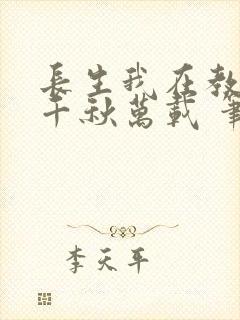 長生我在教
千秋萬載 筆
李天平